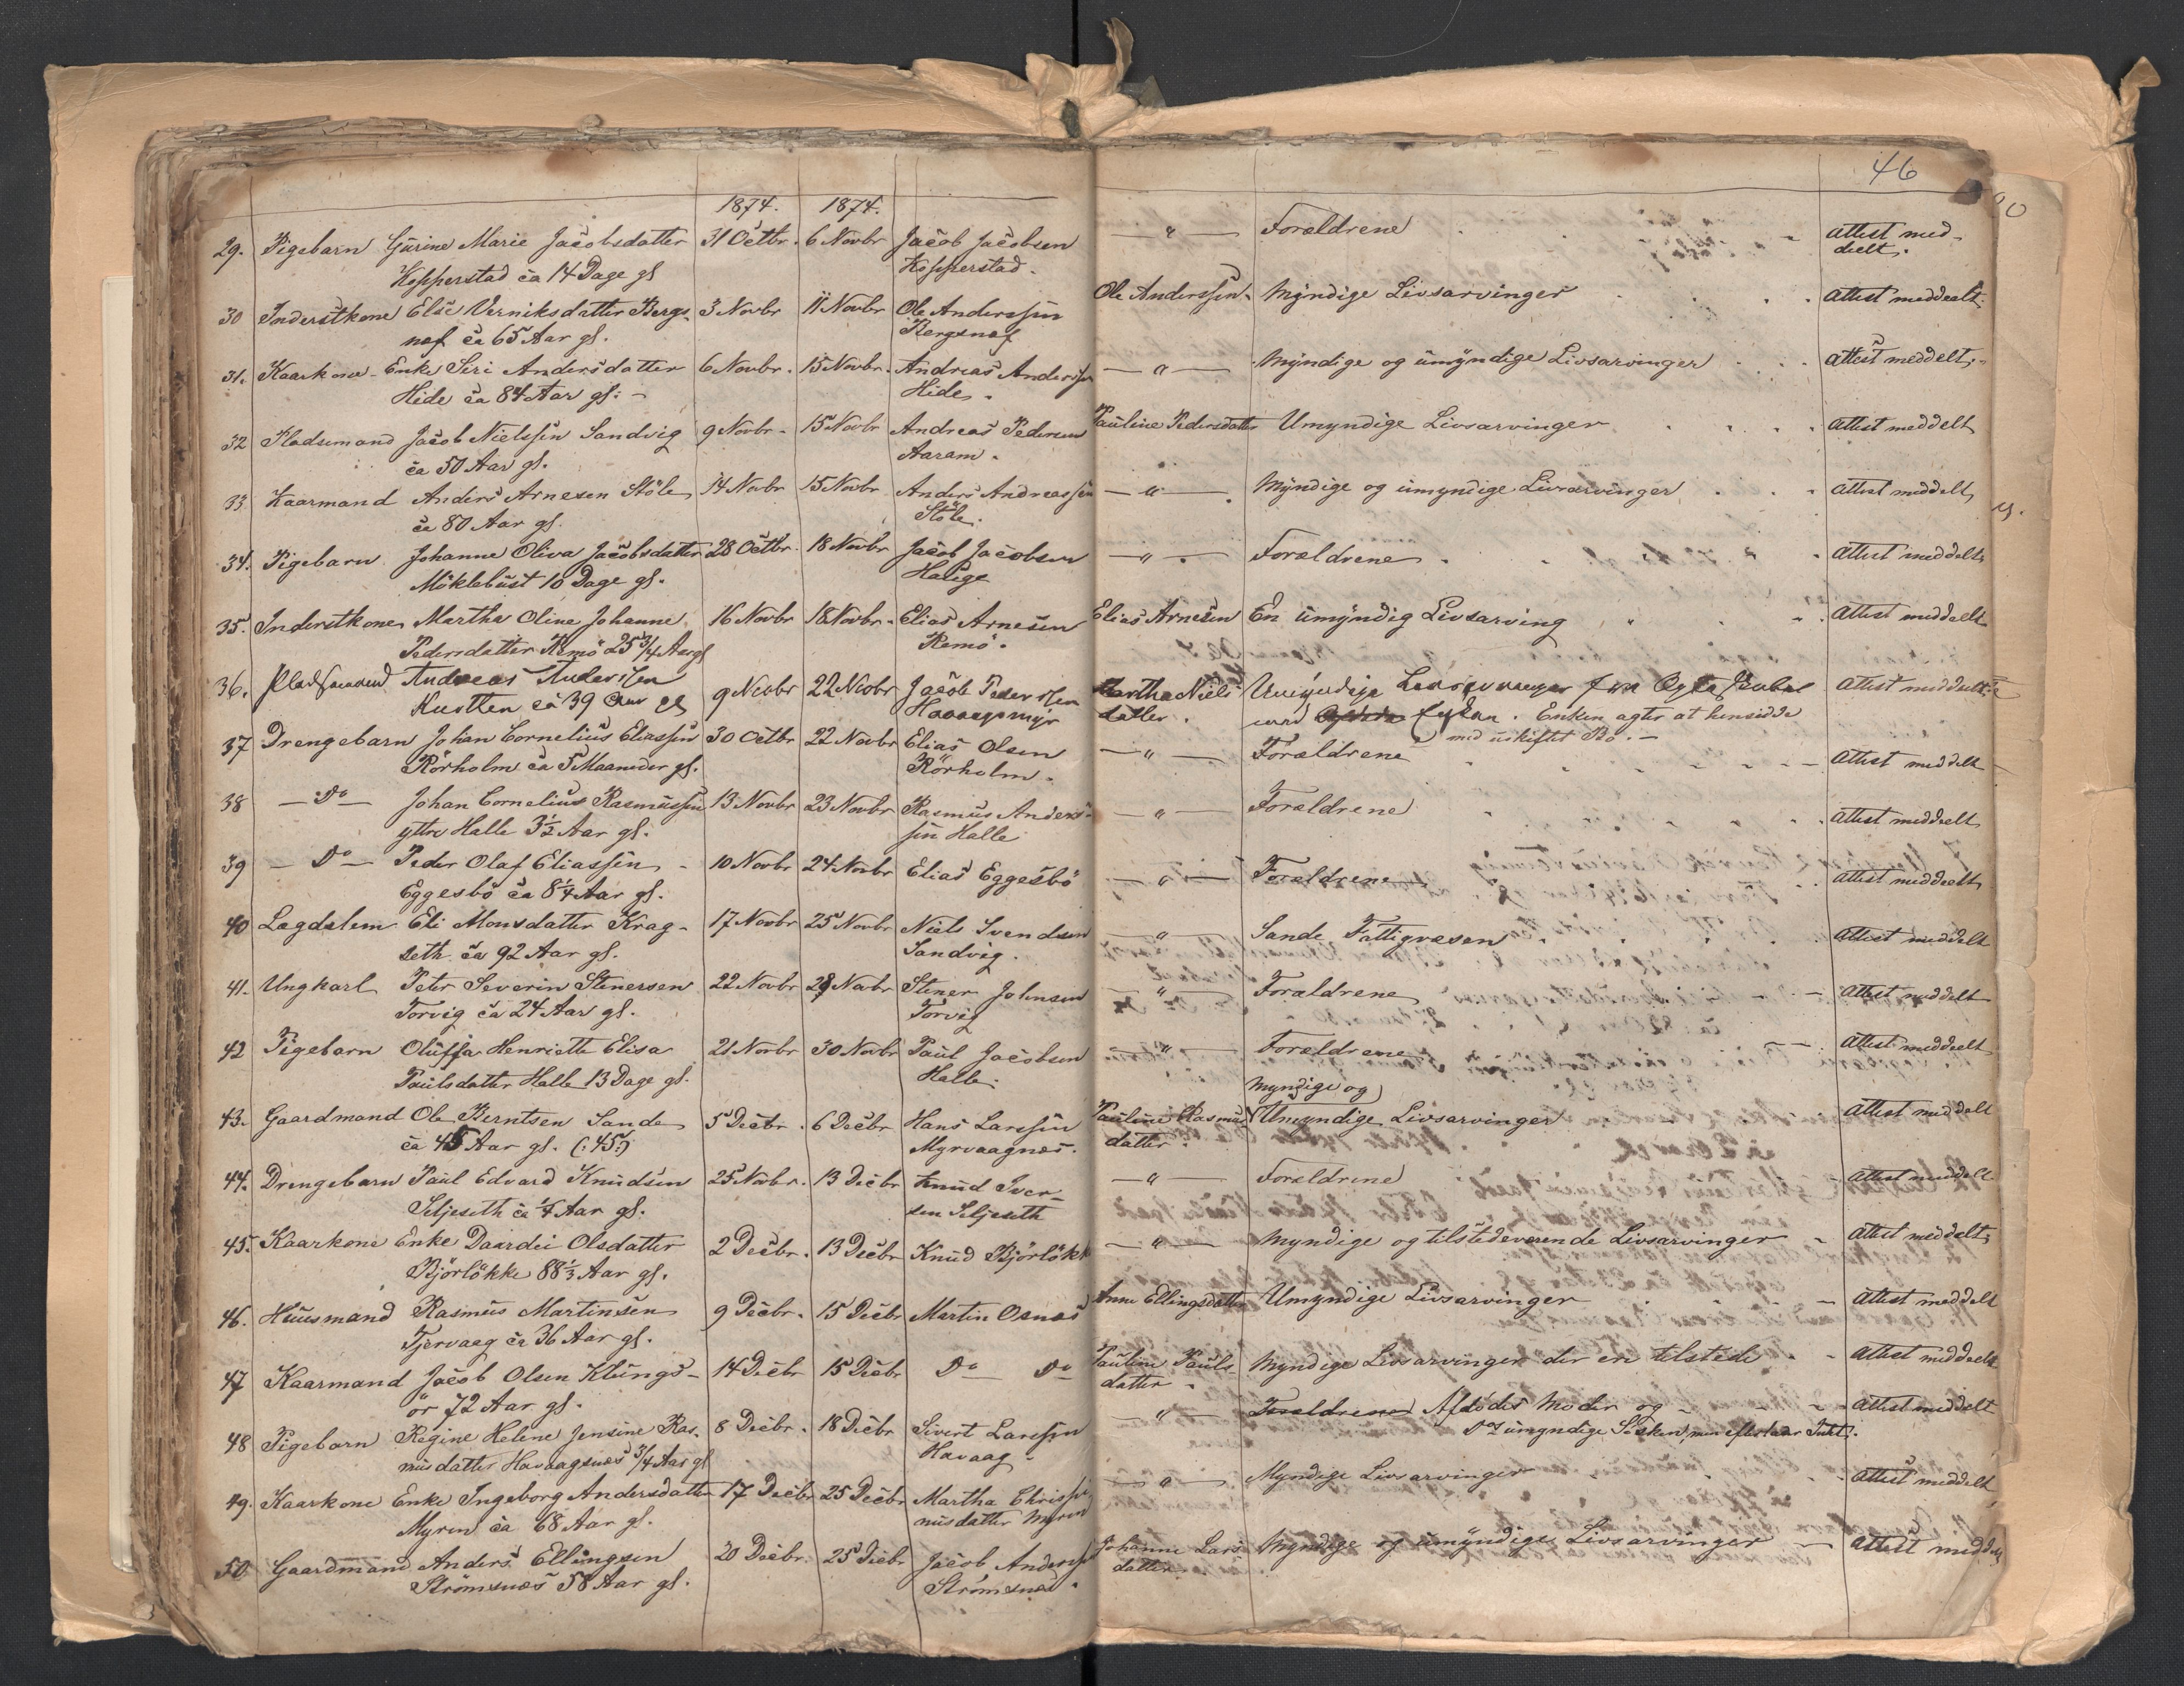 46
1874. 1874.
29. Pigebarn Gurine Marie Jacobsdatter 31 Octbr. 6 Novbr Jacob Jacobsen —〃— Forældrene attest med-
Kopperstad ca 14 Dage gl Kopperstad. deelt.
30 Inderstkone Else Verniksdatter Bergs- 3 Novbr 11 Novbr Ole Anderssen Ole Anderssen. Myndige Livsarvinger attest meddeelt.
næs ca 65 Aar gl. Bergsnæs
31. Kaarkone Enke Siri Andersdatter 6 Novbr. 15 Novbr. Andreas Anderssen —〃— Myndige og umyndige Livsarvinger attest meddelt.
Hide ca 84 Aar gl. Hide.
32 Pladsmand Jacob Nielssen Sandvig 9 Novbr. 15 Novbr Andreas Pedersen Pauline Pedersdatter Umyndige Livsarvinger attest meddelt
ca 50 Aar gl. Aaram.
33. Kaarmand Anders Arnesen Støle 14 Novbr 15 Novbr Anders Andreassen —〃— Myndige og umyndige Livsarvinger attest meddelt
ca 80 Aar gl. Støle.
34. Pigebarn Johanne Oliva Jacobsdatter 28 Octbr. 18 Novbr Jacob Jacobsen —〃— Forældrene attest meddelt
Møklebust 10 Dage gl. Hauge
35. Inderstkone Martha Oline Johanne 16 Novbr 18 Novbr. Elias Arnesen Elias Arnesen En umyndig Livsarving attest meddelt
Pedersdatter Remø 25 3/4 Aar gl Remø.
36. Pladsmand Andreas Andersen 9 Novbr 22 Novbr Jacob Pedersen Martha Niels- Umyndige Livsarvinger attest meddelt
Kustten ca 39 Aar gl Havaagsmyr datter. med Enken. Enken agter at hensidde
med uskiftet Bo.—
37 Drengebarn Johan Cornelius Eliassen 30 Octbr 22 Novbr Elias Olsen —〃— Forældrene attest meddelt
Rörholm ca 5 Maaneder gl. Rörholm.
38 —Do— Johan Cornelius Rasmussen 13 Novbr 23 Novbr Rasmus Anders- —〃— Forældrene attest meddeelt
yttre Halle 3 1/2 Aar gl. sen Halle
39 —Do— Peder Olaf Eliassen 10 Novbr 24 Novbr Elias Eggesbö —〃— Forældrene attest meddeelt
Eggesbö ca 8 1/4 Aar gl.
40 Lægdslem Eli Monsdatter Krag- 17 Novbr 25 Novbr Niels Svendsen —〃— Sande Fattigvæsen attest meddelt
seth ca 92 Aar gl. Sandvig.
41. Ungkarl Peter Severin Stenersen 22 Novbr 28 Novbr Stener Johnsen —〃— Forældrene attest meddelt
Torvig ca 24 Aar gl. Torvig
42 Pigebarn Oluffa Henriette Elisa 21 Novbr 30 Novbr Paul Jacobsen —〃— Forældrene attest meddeelt
Paulsdatter Halle 13 Dage gl. Halle.
Myndige og
43. Gaardmand Ole Berntsen Sande 5 Decbr. 6 Decbr Hans Larssen Pauline Rasmus Umyndige Livsarvinger attest meddelt
ca 45 Aar gl. (:45:) Myrvaagnæs. datter.
44. Drengebarn Paul Edvard Knudsen 25 Novbr. 13 Decbr Knud Iver- —〃— Forældrene attest meddelt
Seljeseth ca 1/4 Aar gl. sen Seljeseth
45. Kaarkone Enke Daardei Olsdatter 2 Decbr. 13 Decbr Knud Björlökk —〃— Myndige og tilstedeværende Livsarvinger attest meddelt
Björlökke 88 1/3 Aar gl.
46. Huusmand Rasmus Martinsen 9 Decbr. 15 Decbr Martin Osnæs Anne Ellingsdatter Umyndige Livsarvinger attest meddelt
Tjervaag ca 36 Aar gl.
47 Kaarmand Jacob Olsen Klungs- 14 Decbr 15 Decbr Do Do Pauline Pauls- Myndige Livsarvinger der er tilstede attest meddeelt
ör 72 Aar gl. datter
48 Pigebarn Regine Heline Jensine Ras- 8 Decbr. 18 Decbr Sivert Larssen —〃— Forældrene Afdödes Moder og attest meddelt
musdatter Havaagsnæs 3/4 Aar gl Havaag umyndige Sösken, men efterlader Intet.
49. Kaarkone Enke Ingeborg Andersdatter 17 Decbr 25 Decbr Martha Chrissi- —〃— Myndige Livsarvinger attest meddelt
Myren ca 68 Aar gl. nusdatter Myren
50 Gaardmand Anders Ellingsen 20 Decbr. 25 Decbr Jacob Anderssen Johanne Lars- Myndige og umyndige Livsarvinger attest meddelt
Strömsnæs 58 Aar gl. Strömsnæs. datter.